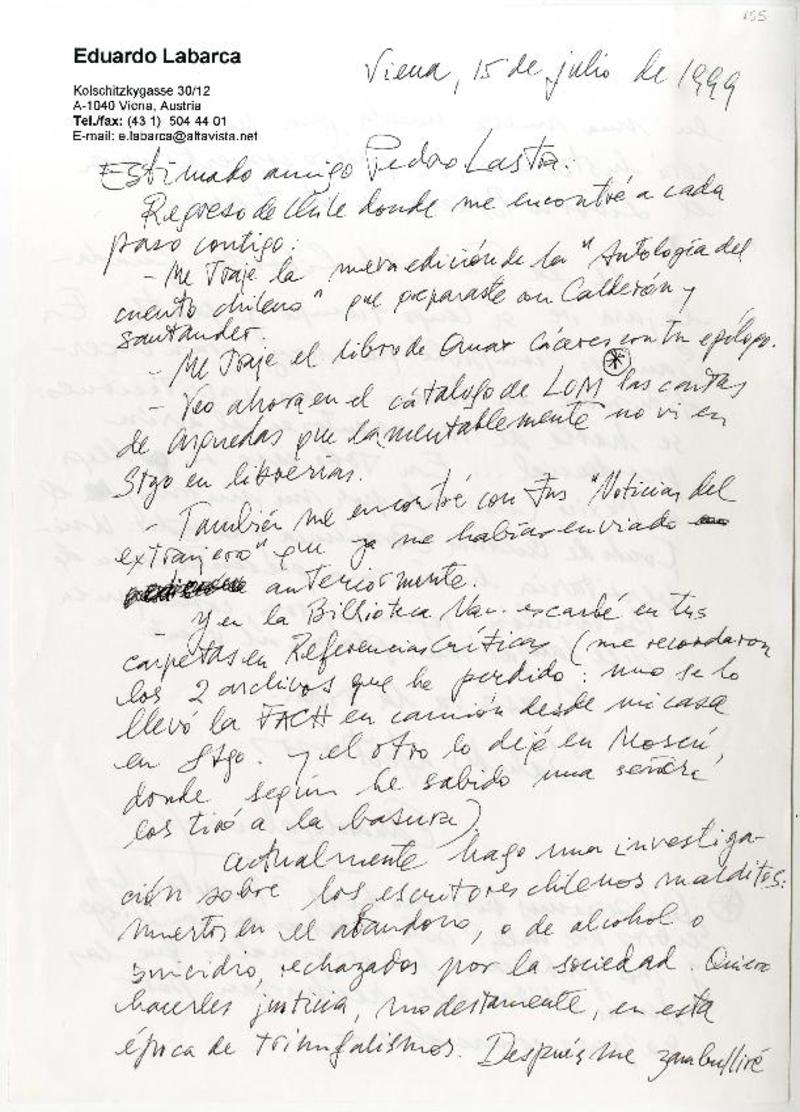 155
Eduardo Labarca
Kolschitzkygasse 30/12
A-1040 Viena, Austria
Tel./fax: (43 1) 504 44 01
E-mail: e.labarca@altavista.net
Viena, 15 de julio de 1999
Estimado amigo Pedro Lastra:
Regreso de Chile donde me encontré a cada
paso contigo:
- Me traje la nueva edición de la "Antología del
cuento chileno" que preparaste con Calderón y
Santander.
- Me traje el libro de Omar Cáceres con tu epílogo.
- Veo ahora en el catálogo de LOM * las cartas
de Arguedas que lamentablemente no vi en
Stgo en librerías.
- También me encontré con tus "Noticias del
extranjero" que ya me habías enviado
anteriormente.
Y en la Biblioteca Nac. escarbé en tus
carpetas en Referencias Críticas (me recordaron
los 2 archivos que he perdido: uno se lo
llevó la FACH en camión desde mi casa
en Stgo. y el otro lo dejé en Moscú,
donde según he sabido una señora
los tiró a la basura)
Actualmente hago una investiga-
ción sobre los escritores chilenos malditos:
muertos en el abandono, o de alcohol o
suicidio, rechazados por la sociedad. Quiero
hacerles justicia, modestamente, en esta
época de triunfalismos. Después me zambulliré